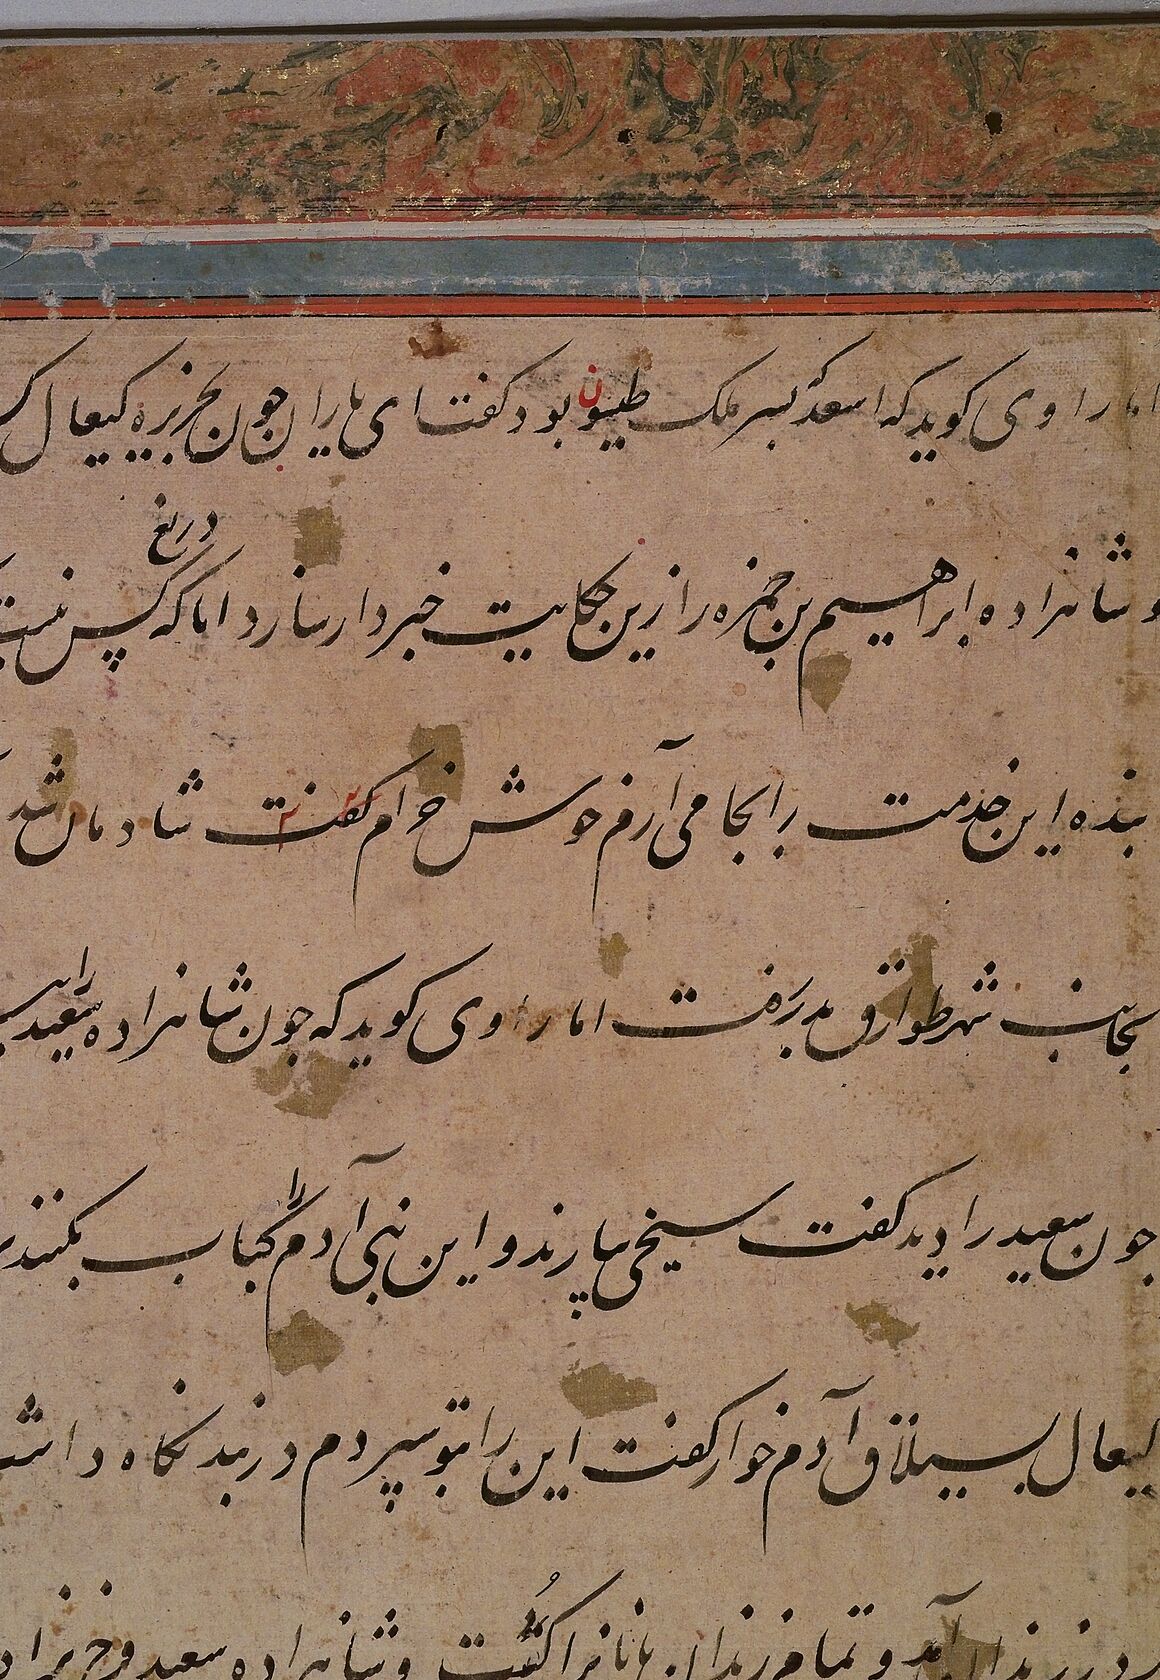 اما راوی کوید که اسعد پسر ملک طیبون بود کفت ای یاران جون بجزیره کیعال
و شاهزاده ابراهیم بن حمزه را ازین حکایت خبردار سازد اما دریغ که کس نیست
بنده این خدمت را بجا می آرم خوش خرام کفت شادمان شد
بجانب شهر طوارق بدر رفت اما راوی کوید که جون شاهزاده سعید را
جون سعید را دید کفت سیخی بیارند و این بنی آدم را کباب بکنند
کیعال بسیلاق آدم خوار کفت این را بتو سپردم در بند نکاه
آمد و تمام زندان بانانرا کشت و شاهزاده سعید و